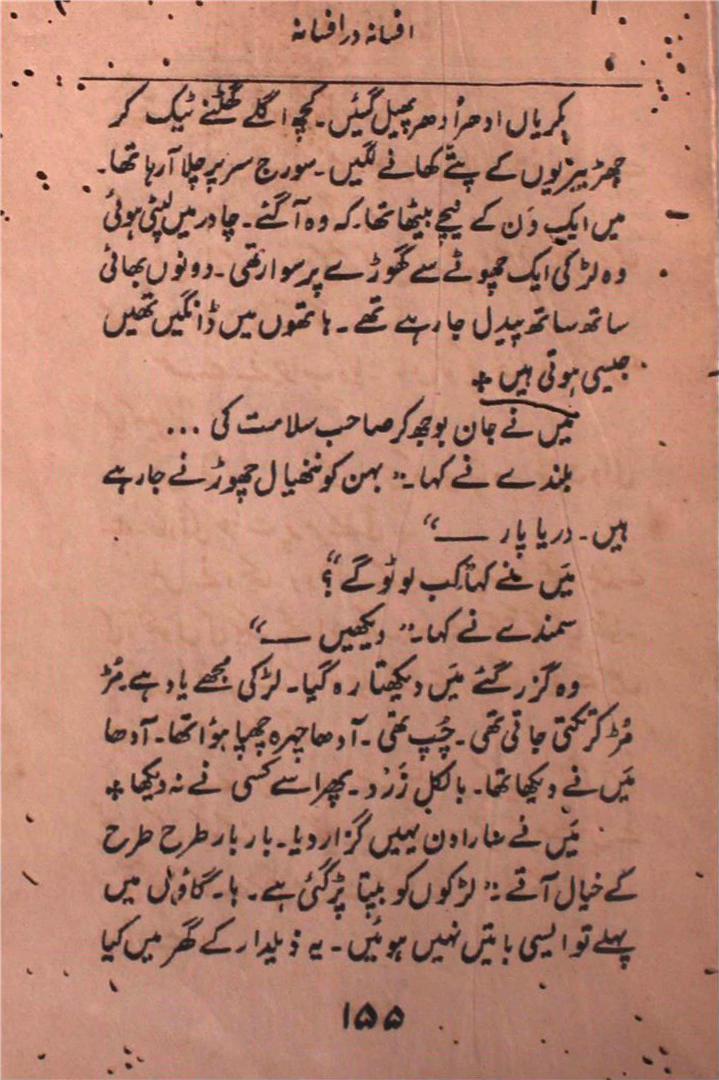 افسانہ در افسانہ
بکریاں ادھر اُدھر پھیل گئیں۔ کچھ اگلے گھٹنے ٹیک کر
جھڑبیریوں کے پتّے کھانے لگیں۔ سورج سر پر چلا آ رہا تھا۔
میں ایک وَن کے نیچے بیٹھا تھا۔ کہ وہ آ گئے۔ چادر میں لپٹی ہوئی
وہ لڑکی ایک چھوٹے سے گھوڑے پر سوار تھی۔ دونوں بھائی
ساتھ ساتھ پیدل جا رہے تھے۔ ہاتھوں میں ڈانگیں تھیں
جیسی ہوتی ہیں +
میں نے جان بوجھ کر صاحب سلامت کی ...
بلندے نے کہا۔ ”بہن کو ننھیال چھوڑنے جا رہے
ہیں۔ دریا پار ——“
مَیں نے کہا ”کب لوٹو گے“؟
سمندے نے کہا۔ ”دیکھیں ——“
وہ گزر گئے مَیں دیکھتا رہ گیا۔ لڑکی مجھے یاد ہے۔ مُڑ
مُڑ کر تکتی جاتی تھی۔ چُپ تھی۔ آدھا چہرہ چھپا ہؤا تھا۔ آدھا
مَیں نے دیکھا تھا۔ بالکل زَرْد۔ پھر اسے کسی نے نہ دیکھا +
مَیں نے سارا دن یہیں گزار دیا۔ بار بار طرح طرح
کے خیال آتے :” لڑکوں کو بپتا پڑ گئی ہے۔ ہا۔ گاؤں میں
پہلے تو ایسی باتیں نہیں ہوئیں۔ یہ ذیلدار کے گھر میں کیا
۱۵۵